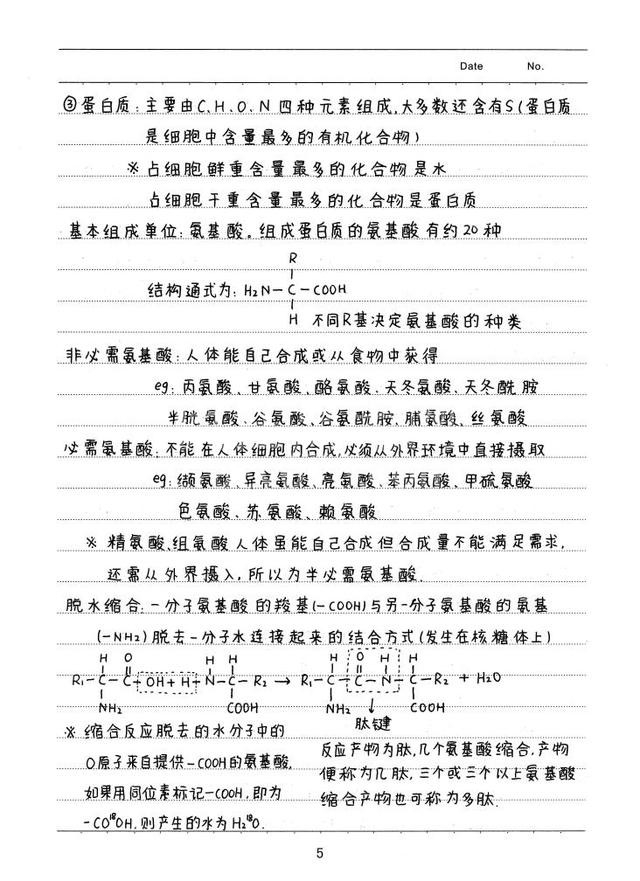 Date No.
③蛋白质:主要由C、H、O、N四种元素组成,大多数还含有S(蛋白质
是细胞中含量最多的有机化合物)
※占细胞鲜重含量最多的化合物是水
占细胞干重含量最多的化合物是蛋白质
基本组成单位:氨基酸。组成蛋白质的氨基酸有约20种
R
结构通式为:H₂N-C-COOH
H 不同R基决定氨基酸的种类
非必需氨基酸:人体能自己合成或从食物中获得
eg:丙氨酸、甘氨酸、酪氨酸、天冬氨酸、天冬酰胺
半胱氨酸、谷氨酸、谷氨酰胺、脯氨酸、丝氨酸
必需氨基酸:不能在人体细胞内合成,必须从外界环境中直接摄取
eg:缬氨酸、异亮氨酸、亮氨酸、苯丙氨酸、甲硫氨酸
色氨酸、苏氨酸、赖氨酸
※ 精氨酸、组氨酸人体虽能自己合成但合成量不能满足需求,
还需从外界摄入,所以为半必需氨基酸.
脱水缩合:一分子氨基酸的羧基(-COOH)与另一分子氨基酸的氨基
(-NH₂)脱去一分子水连接起来的结合方式(发生在核糖体上)
H O H H H O H H
R₁-C-C-OH+H-N-C-R₂→R₁-C-C-N-C-R₂+H₂O
NH₂ COOH NH₂ ↓ COOH
肽键
※缩合反应脱去的水分子中的
O原子来自提供-COOH的氨基酸,
如果用同位素标记-COOH,即为
-CO¹⁸OH,则产生的水为H₂¹⁸O.
反应产物为肽,几个氨基酸缩合,产物
便称为几肽,三个或三个以上氨基酸
缩合产物也可称为多肽.
5